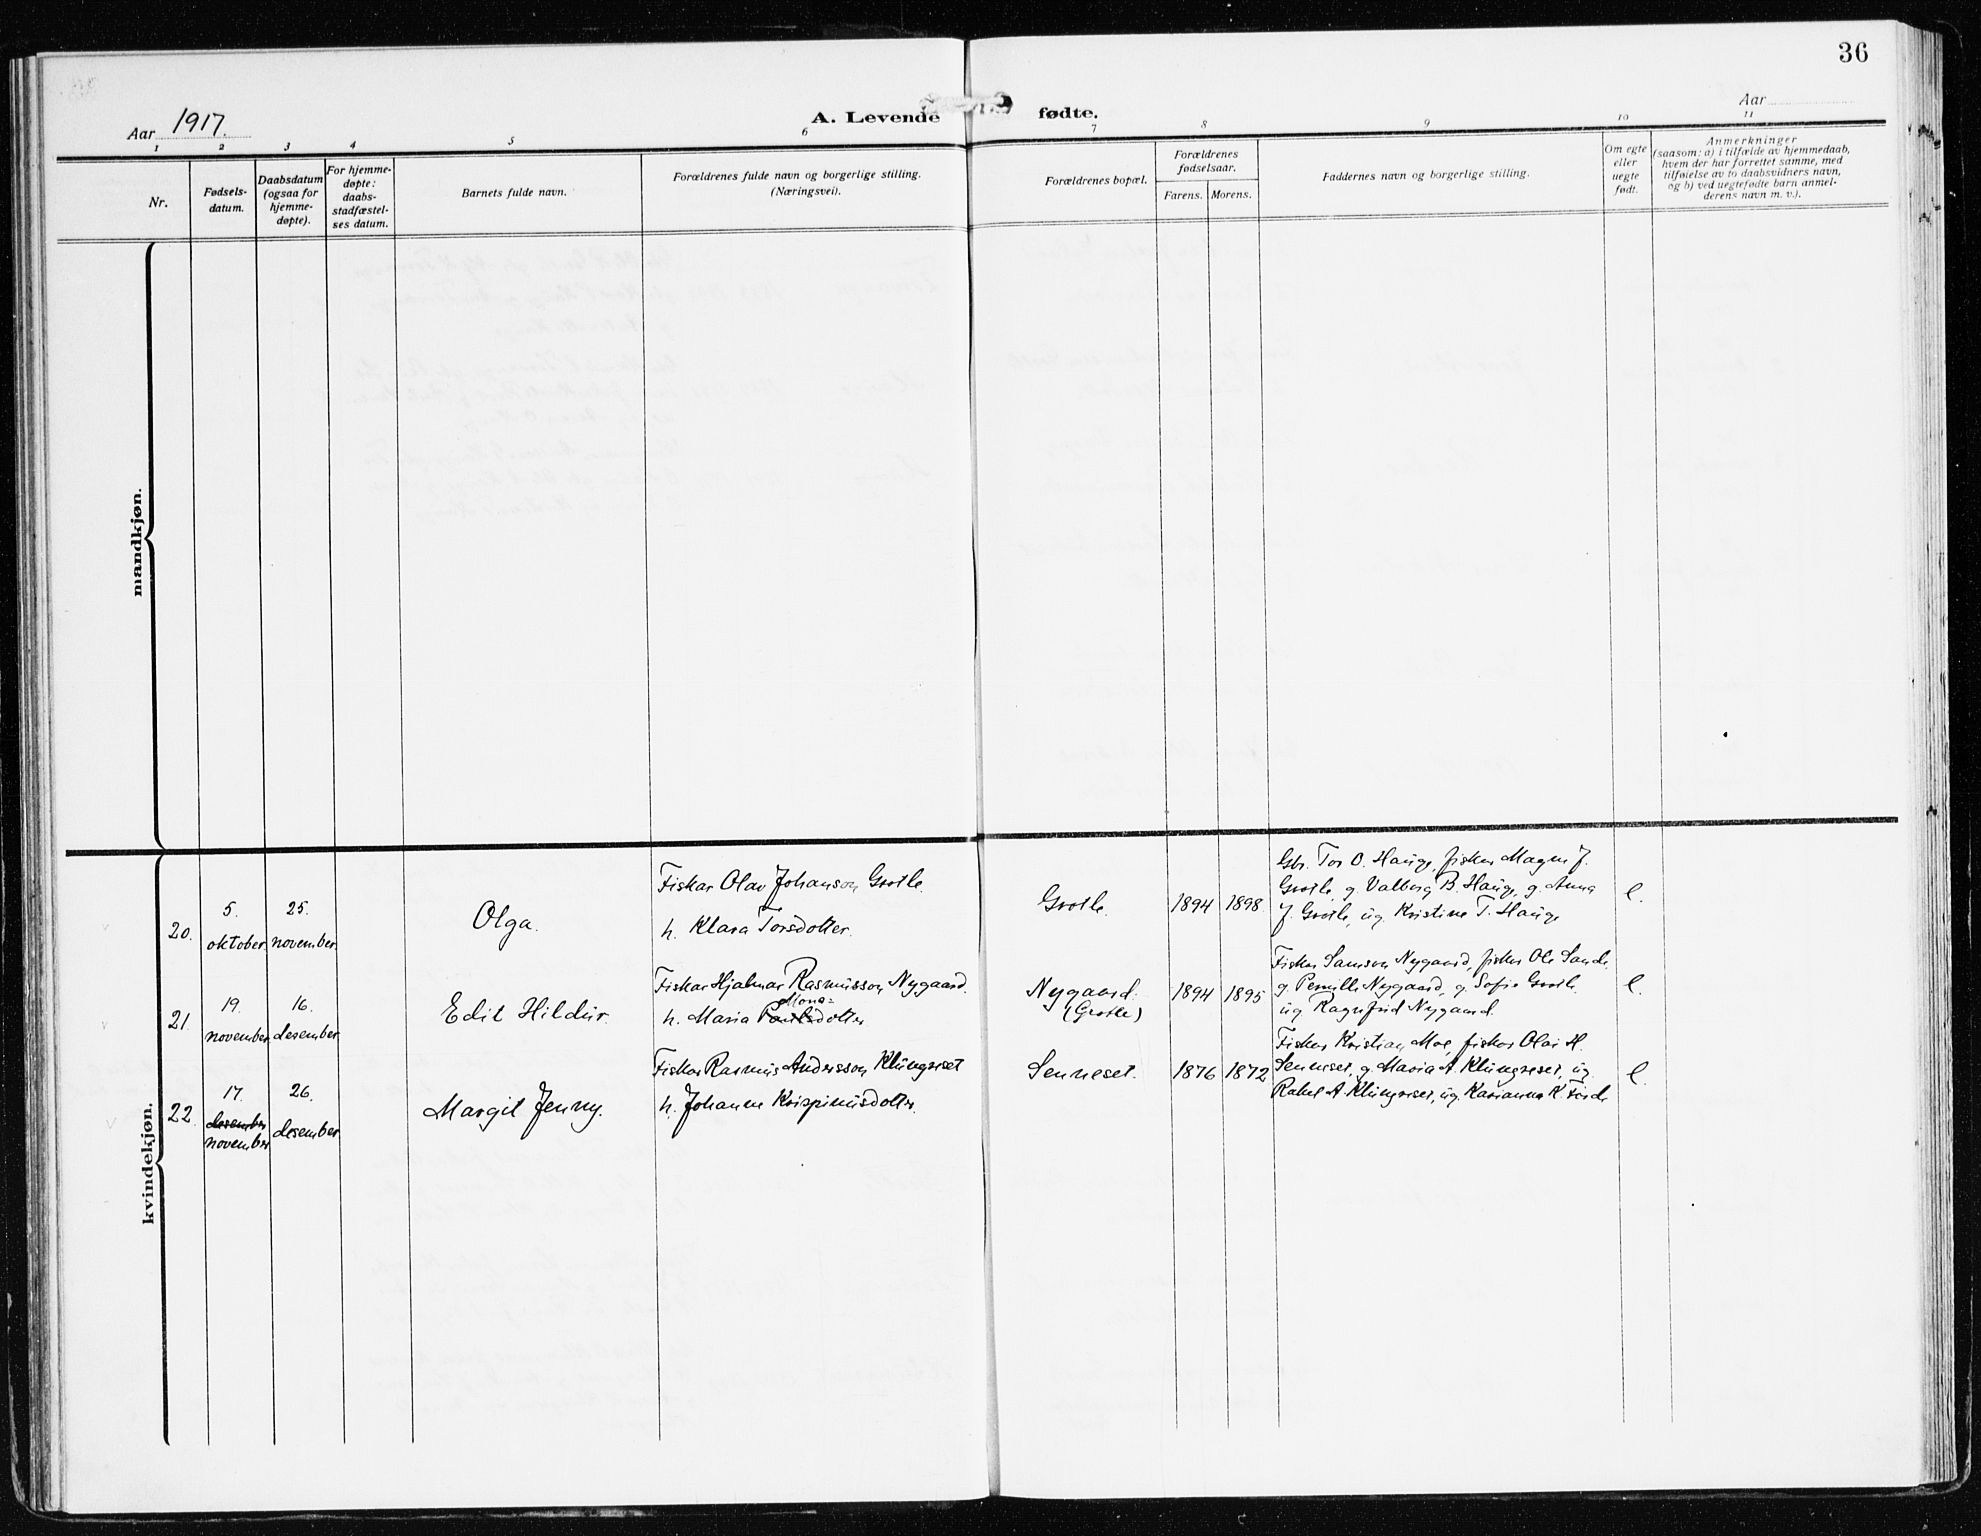 36
Aar 1917.
A. Levende fødte.
Aar
1 2 3 4 5 6 7 8 9 10 11
Nr.
Fødsels-
datum.
Daabsdatum
(ogsaa for
hjemme-
døpte).
For hjemme-
døpte:
daabs-
stadfæstel-
ses datum.
Barnets fulde navn.
Forældrenes fulde navn og borgerlige stilling.
(Næringsvei).
Forældrenes bopæl.
Forældrenes
fødselsaar.
Farens. Morens.
Faddernes navn og borgerlige stilling.
Om egte
eller
uegte
født.
Anmerkninger
(saasom: a) i tilfælde av hjemmedaab,
hvem der har forrettet samme, med
tilføielse av to daabsvidners navn,
og b) ved uegtefødte barn anmel-
derens navn m. v.).
mandkjøn.
kvindekjøn.
20.
5.
oktober.
25.
november.
Olga.
Fiskar Olav Johanson Grotle.
h. Klara Torsdotter.
Grotle.
1894 1898.
Gbr. Tor O. Hauge, fiskar Magn J.
Grotle, g. Valborg B. Hauge, g. Anna
J. Grotle, ug. Kristine T. Hauge
e.
21.
19.
november.
16.
desember.
Edit Hildur.
Fiskar Hjalmar Rasmusson Nygaard.
Mons=
h. Maria Paulsdotter
Nygaard.
(Grotle)
1894 1895
Fiskar Samson Nygaard, fiskar Ole Sande
g. Pernille Nygaard, g. Sofie Grotle.
ug Ragnfrid Nygaard.
e.
22.
17.
desember
november
26.
desember.
Margit Jenny.
Fiskar Rasmus Andersson Klungreset
h. Johanne Krispinusdotter.
Senneset.
1876 1872
Fiskar Kristian Moe, fiskar Olai H.
Senneset, g. Maria A Klungreset, ug.
Rakel A. Klungreset, ug. Karianna K. Førde
e.